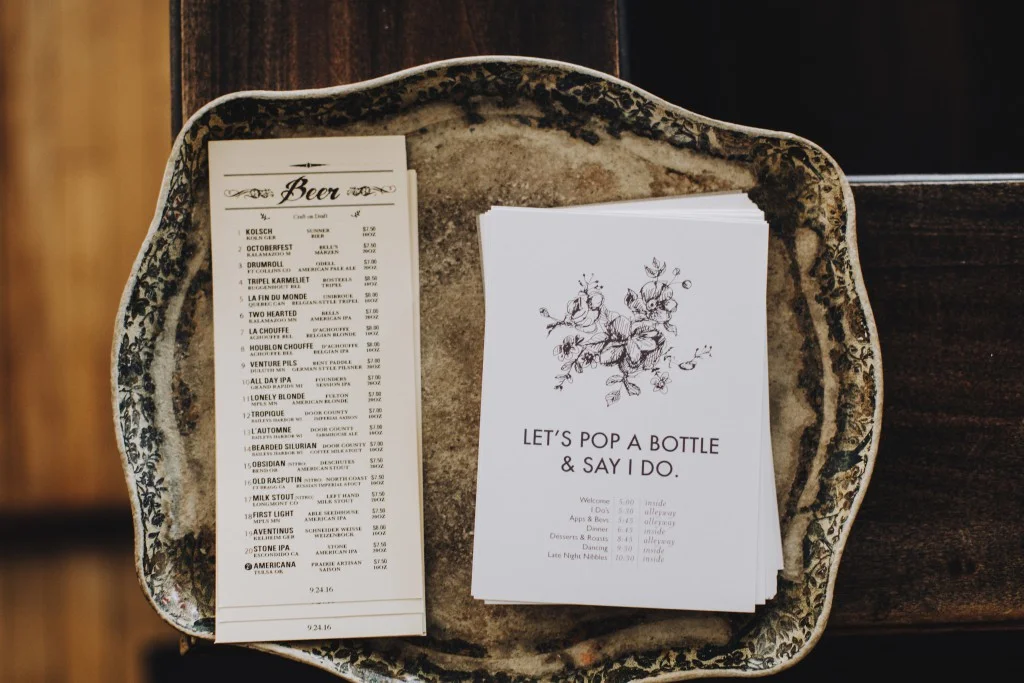 Beer
Craft on Draft
1 KOLSCH SUNNER $7.50
KOLN GER BIER 10OZ
2 OCTOBERFEST BELL'S $7.00
KALAMAZOO M MARZEN
3 DRUMROLL ODELL $7.00
FT COLLINS CO AMERICAN PALE ALE
4 TRIPEL KARMELIET BOSTEELS
BUGGENHOUT BEL TRIPEL 10OZ
5 LA FIN DU MONDE UNIBROUE $8.00
QUEBEC CAN BELGIAN-STYLE TRIPEL 10OZ
6 TWO HEARTED BELLS $7.00
KALAMAZOO MN AMERICAN IPA
7 LA CHOUFFE D'ACHOUFFE $8.00
ACHOUFFE BEL BELGIAN BLONDE 10OZ
8 HOUBLON CHOUFFE D'ACHOUFFE $8.00
ACHOUFFE BEL BELGIAN IPA 10OZ
9 VENTURE PILS BENT PADDLE $7.00
DULUTH MN GERMAN STYLE PILSNER
10 ALL DAY IPA FOUNDERS $7.00
GRAND RAPIDS MI SESSION IPA
11 LONELY BLONDE FULTON $7.00
MPLS MN AMERICAN BLONDE
12 TROPIQUE DOOR COUNTY $7.00
BAILEYS HARBOR WI IMPERIAL SAISON 10OZ
13 L'AUTOMNE DOOR COUNTY $7.00
BAILEYS HARBOR WI FARMHOUSE ALE 10OZ
14 BEARDED SILURIAN DOOR COUNTY $7.00
BAILEYS HARBOR WI COFFEE MILK STOUT 10OZ
15 OBSIDIAN (NITRO) DESCHUTES $7.50
BEND OR AMERICAN STOUT
16 OLD RASPUTIN (NITRO) NORTH COAST $7.50
FT BRAGG CA RUSSIAN IMPERIAL STOUT 10OZ
17 MILK STOUT (NITRO) LEFT HAND $7.50
LONGMONT CO MILK STOUT
18 FIRST LIGHT ABLE SEEDHOUSE $7.50
MPLS MN AMERICAN IPA
19 AVENTINUS SCHNEIDER WEISSE $8.00
KELHEIM GER WEIZENBOCK 10OZ
20 STONE IPA STONE $7.50
ESCONDIDO CA AMERICAN IPA
AMERICANA PRAIRIE ARTISAN $7.50
TULSA OK SAISON 10OZ
9.24.16
9.24.16
LET'S POP A BOTTLE
& SAY I DO.
Welcome 5:00 inside
I Do's 5:30 alleyway
Apps & Bevs 5:45 alleyway
Dinner 6:45 inside
Desserts & Roasts 8:45 alleyway
Dancing 9:30 inside
Late Night Nibbles 10:30 inside